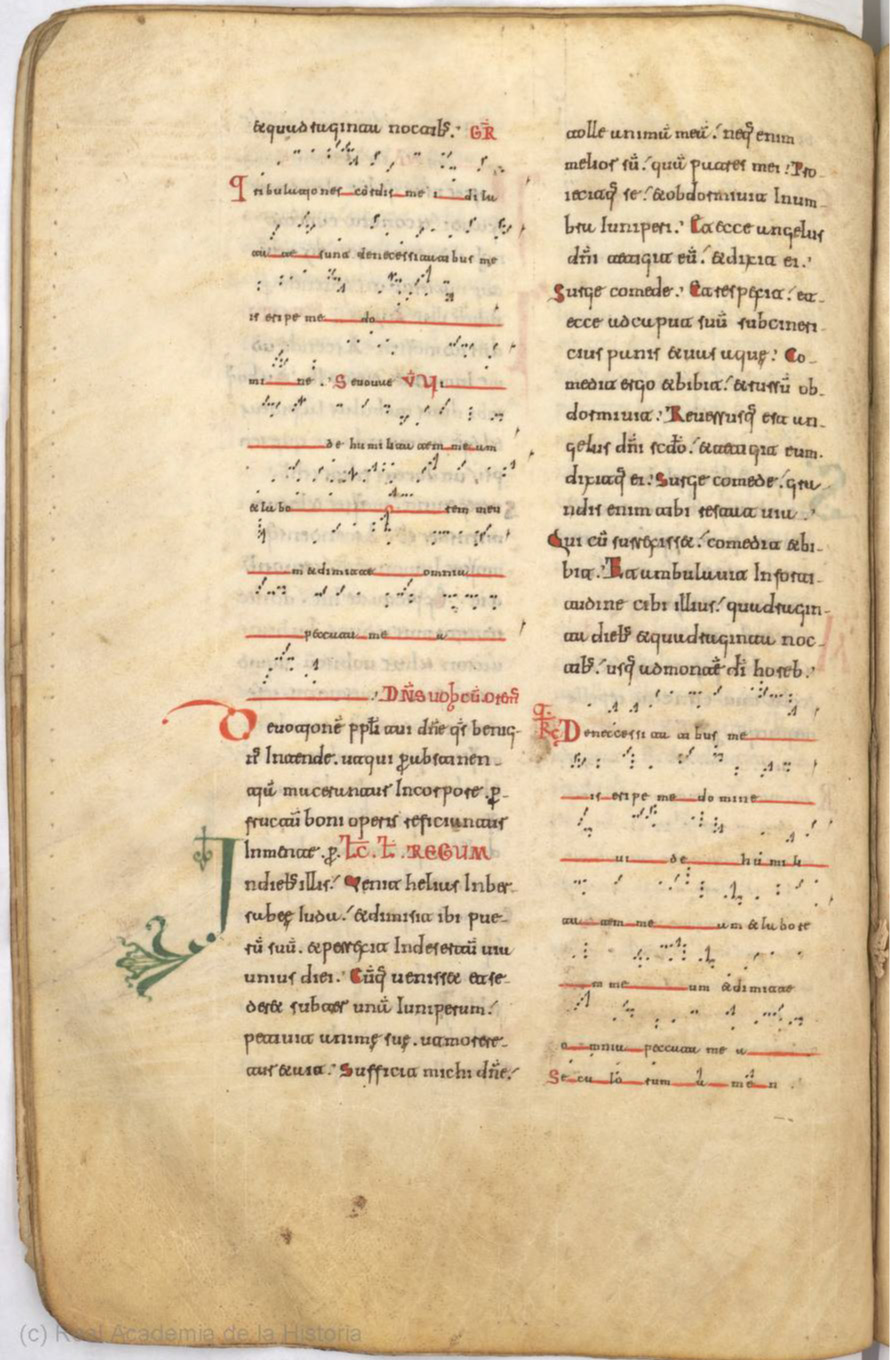 &quadraginta noctib;. GR
Tribulationes cordis me i dila
tate sunt denecessitatibus me
is eripe me do
mi ne . Seuouae V Vi
de humilitatem meam
&labo rem meu
m &dimitte omnia
peccata me a
DNS uobcū. orem
Deuotionē ppłi tui dn̄e qs benig
n9 Intende. utqui p abstinen
tiā macerantur Incorpore. p
fructū boni operis reficiantur
Inmente. p. Łc. Ł. REGUM
Indieb; illis. Venit helias Inber
sabeę Iuda. &dimisit ibi pue
rū suū. &perrexit Indesertū uia
unius diei. Cūq; uenisset &se
deret subter unā Iuniperum.
petiuit animę suę. utmorere
tur &ait. Sufficit michi dn̄e.
tolle animā meā. neq; enim
melior sū. quā patres mei. Pro
iecitq; se. &obdormiuit Inum
bra Iuniperi. Et ecce angelus
dn̄i tetigit eū. &dixit ei.
Surge comede. Et respexit. et
ecce adcaput suū subcineri
cius panis &uas aquę. Co
medit ergo &bibit. &rursū ob
dormiuit. Reuersusq; est an
gelus dn̄i scdō. &tetigit eum.
dixitq; ei. Surge comede. gra
ndis enim tibi restat uia.
Qui cū surrexisset. comedit &bi
bit. Et ambulauit Inforti
tudine cibi illius. quadragin
ta dieb; &quadraginta noc
tib;. usq; admontē di horeb.
Denecessitatibus me
is eripe me domine
ui de humili
tatem me um &labore
m me um &dimitte
o mnia peccata me a
Seculorum amen
(c) Real Academia de la Historia